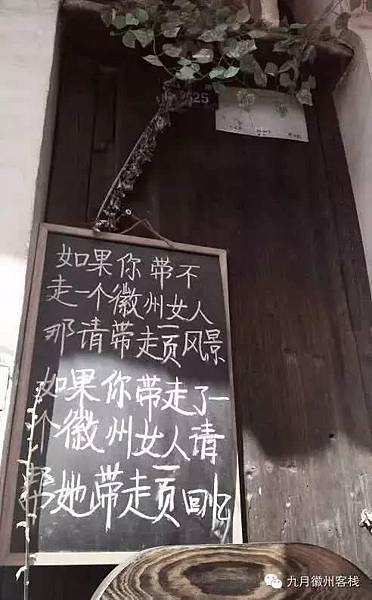 25
如果你带不
走一个徽州女人
那请带走一页风景
如果你带走了一
个徽州女人请
帮她带走一页回忆
九月徽州客栈